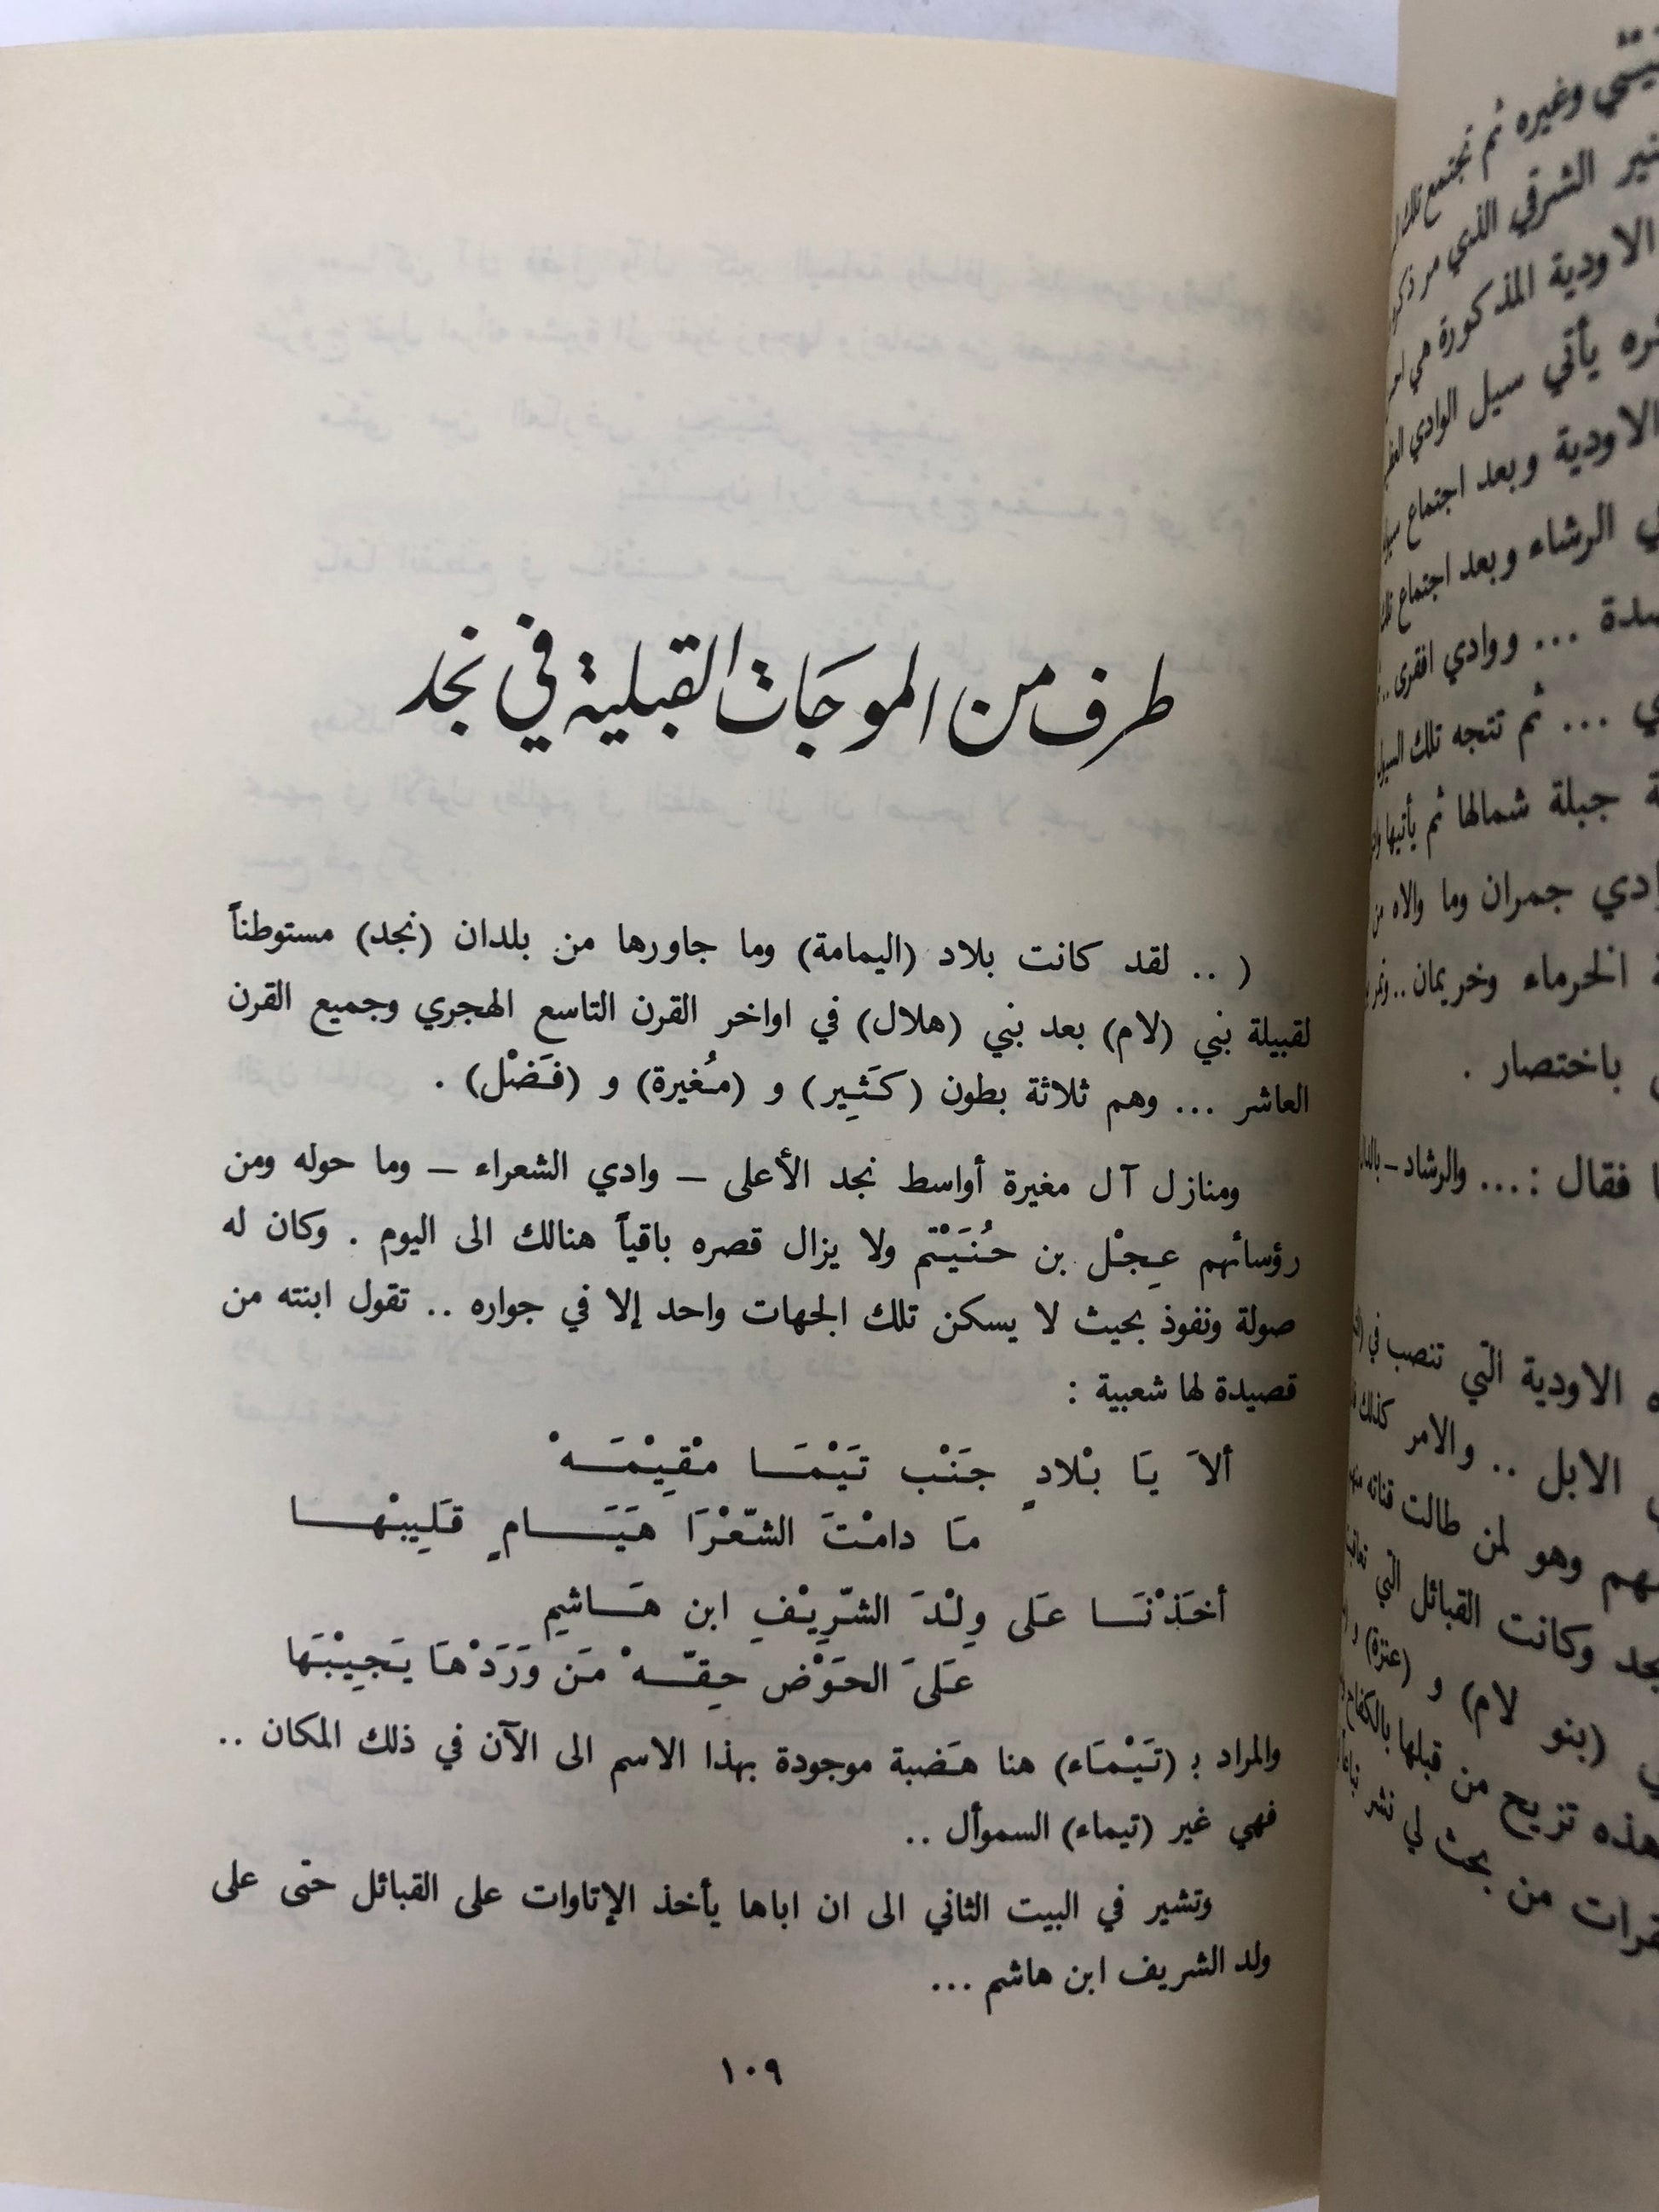 طرف من الموجات القبلية في نجد
( .. لقد كانت بلاد (اليمامة) وما جاورها من بلدان (نجد) مستوطناً
لقبيلة بني (لام) بعد بني (هلال) في اواخر القرن التاسع الهجري وجميع القرن
العاشر ... وهم ثلاثة بطون (كَثِير) و (مُغيرة) و (فَضْل) .
ومنازل آل مغيرة أواسط نجد الأعلى – وادي الشعراء – وما حوله ومن
رؤسائهم عِجْل بن حُنَيْتم ولا يزال قصره باقياً هنالك الى اليوم . وكان له
صولة ونفوذ بحيث لا يسكن تلك الجهات واحد إلا في جواره .. تقول ابنته من
قصيدة لها شعبية :
ألاَ يَا بْلادٍ جَنْب تَيْمَـــا مْقِيْمَـــهْ
مَا دامْتَ الشّعْرَا هَيَـــــامٍ قَلِيبْهـــــا
أخَذْنَـــا عَلى وِلْدَ الشّرِيْفِ ابن هَـــاشمِ
عَلىَ الحَوْض حِقّــهْ مَن وَرَدْهَا يَجِيْبَها
والمراد بـ (تَيْمَاء) هنا هَضبة موجودة بهذا الاسم الى الآن في ذلك المكان ..
فهي غير (تيماء) السموأل ..
وتشير في البيت الثاني الى ان اباها يأخذ الإتاوات على القبائل حتى على
ولد الشريف ابن هاشم ...
١٠٩
وغيره ثم تجتمع
الشرقي الذي مر
الاودية المذكورة هي
يأتي سيل الوادي
الاودية وبعد اجتماع
الرشاء وبعد اجتماع
... ووادي افقرى ..
... ثم تتجه تلك
جبلة شمالها ثم يأتيها
جمران وما والاه من
الخرماء وخريمان ..
باختصار .
فقال : ... والرشاد –
الاودية التي تنصب في
الابل .. والامر كذلك
وهو لمن طالت قناته
وكانت القبائل التي
(بنو لام) و (عنزة) و
هذه تزيح من قبلها بالكفاح
من بحث لي نشر